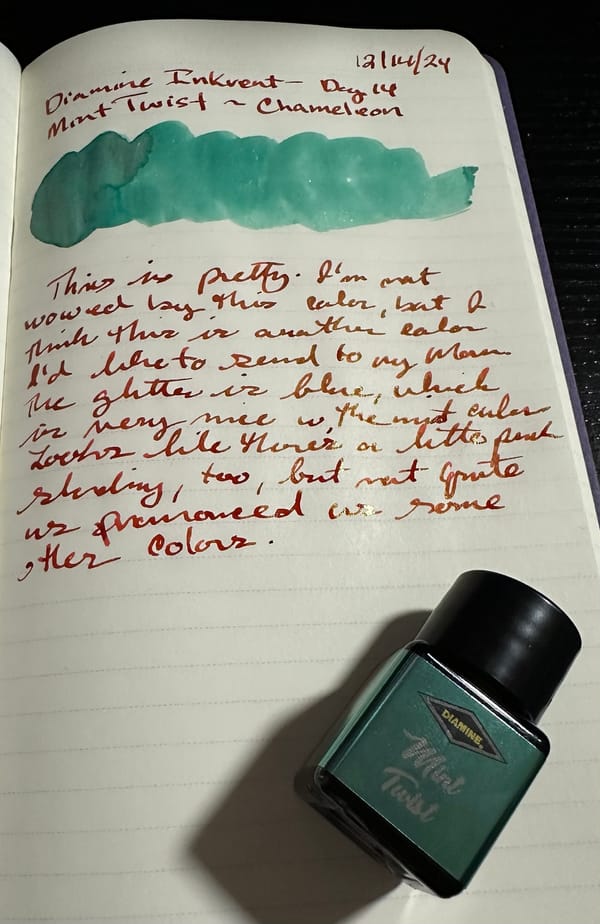 12/14/24
Diamine Inkvent - Day 14
Mint Twist ~ Chameleon
This is pretty. I'm not
wowed by this color, but I
think this is another color
I'd like to send to my Mom.
The glitter is blue, which
is very nice w/ the mint color
Looks like there's a little pink
shading, too, but not quite
as pronounced as some
other colors.
DIAMINE
Mint
Twist